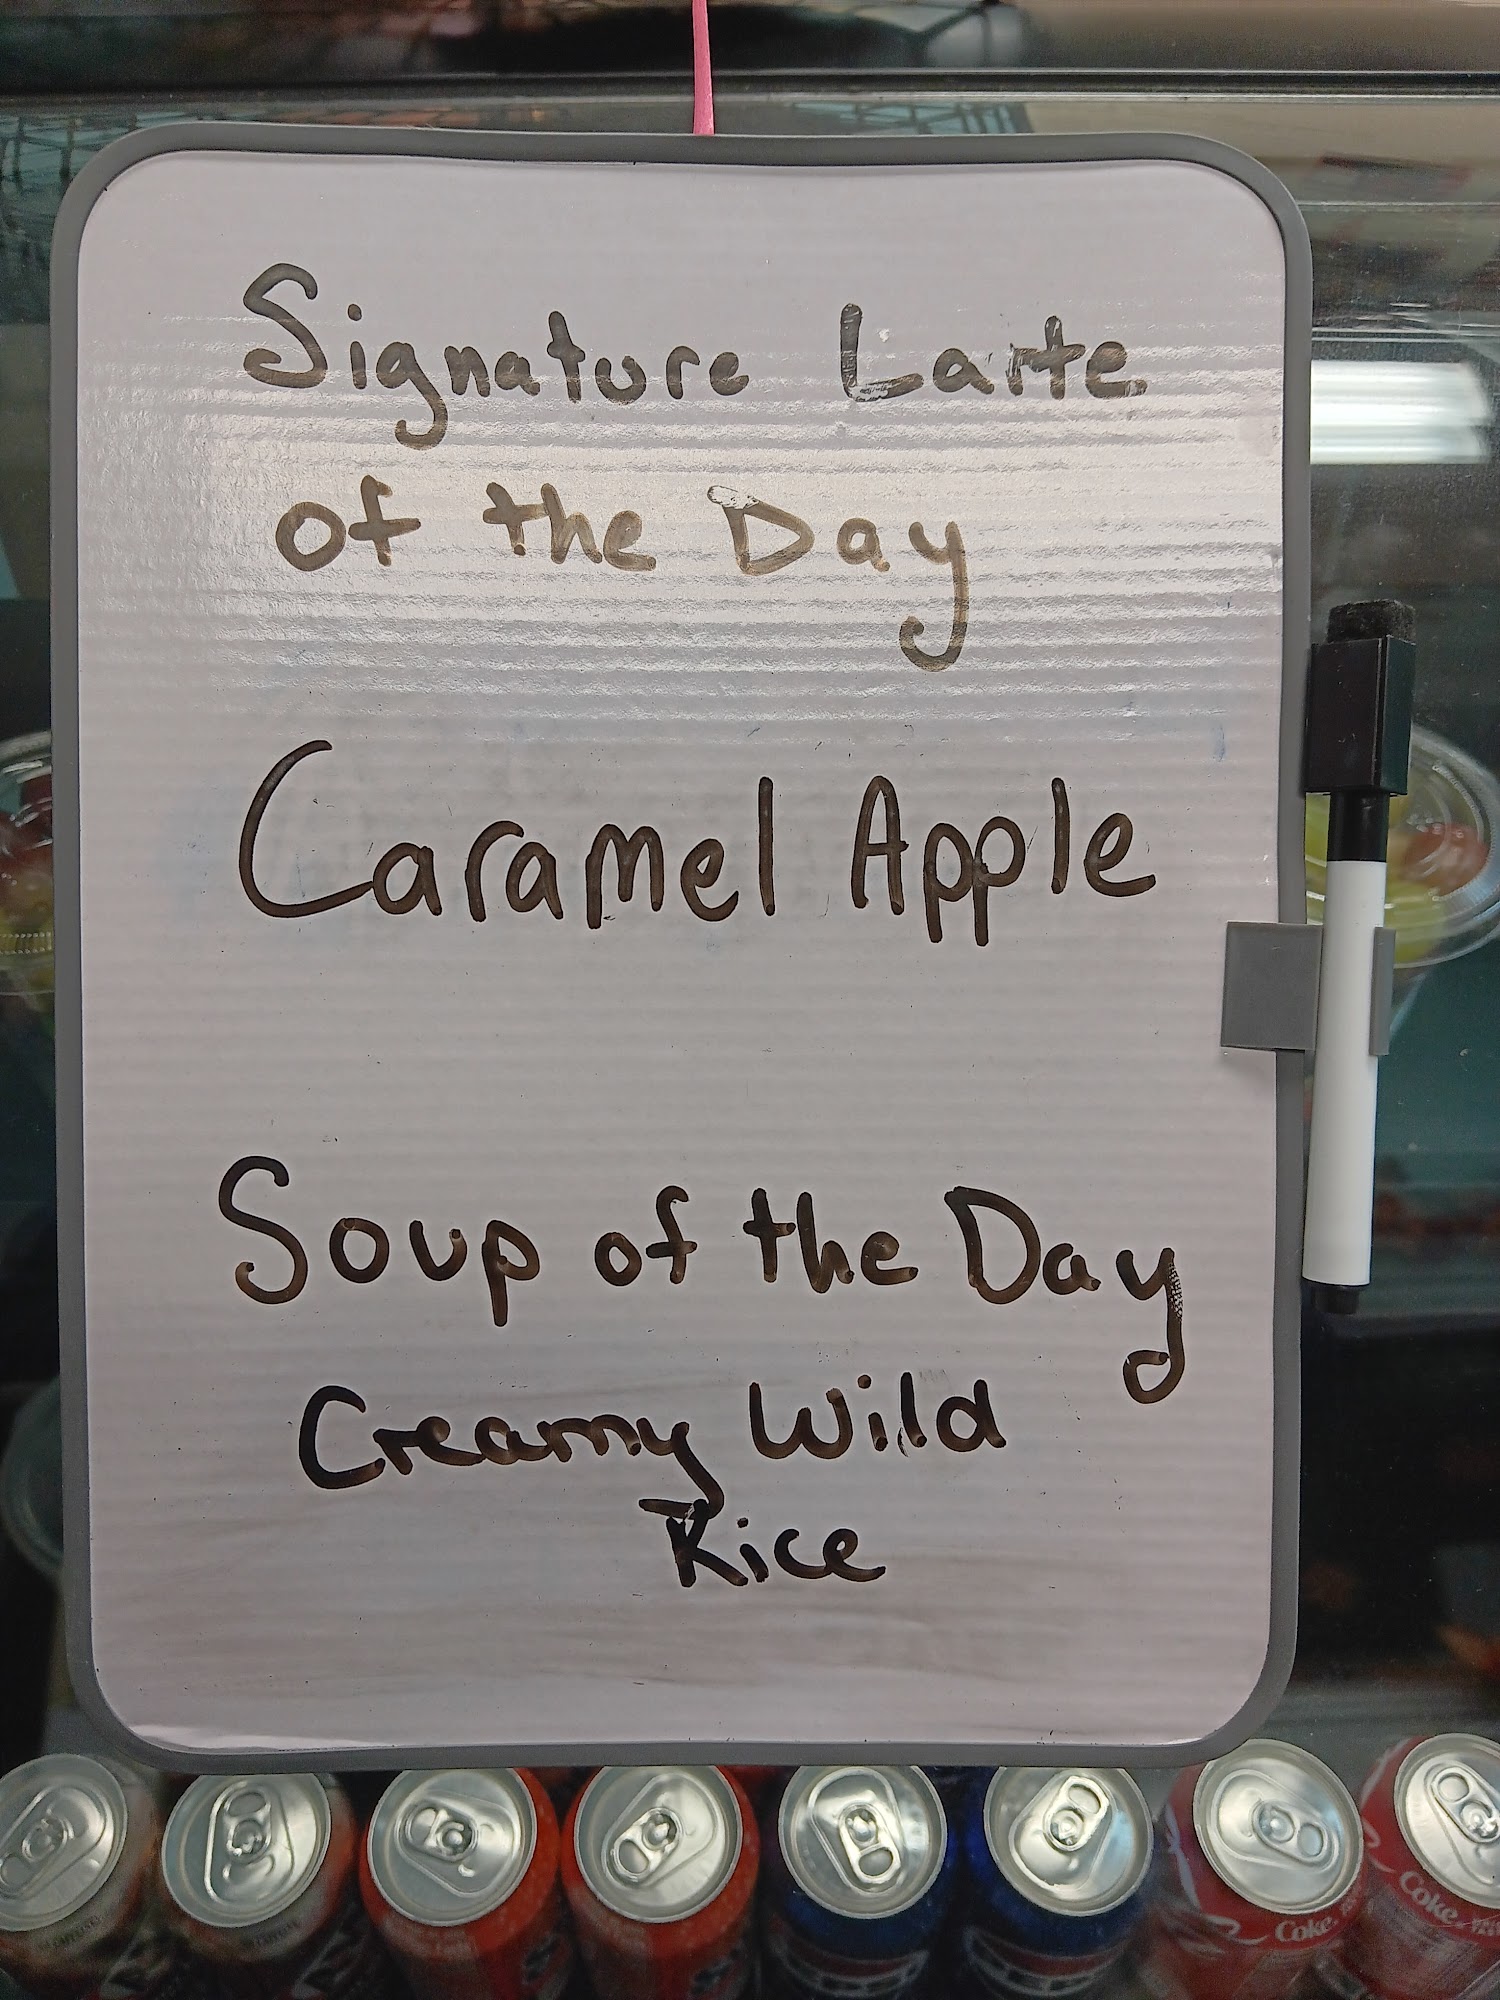 Signature Latte
of the Day
Caramel Apple
Soup of the Day
Creamy Wild
Rice
Coke
Coke